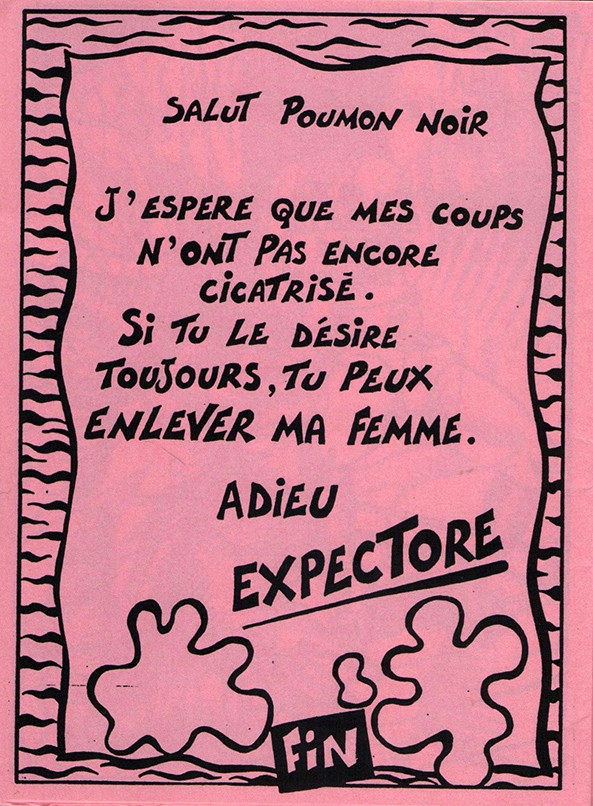 SALUT POUMON NOIR
J'ESPERE QUE MES COUPS
N'ONT PAS ENCORE
CICATRISÉ.
Si TU LE DÉSIRE
TOUJOURS, TU PEUX
ENLEVER MA FEMME.
ADiEU
EXPECTORE
FiN